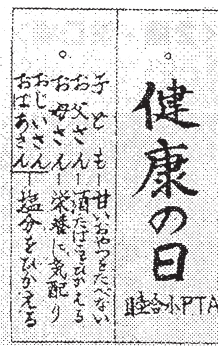 健康の日
睦合小PTA
子ども―甘いおやつをたべない
お父さん―酒たばこをひかえる
お母さん―栄養に気配り
おじいさん
おばあさん―塩分をひかえる